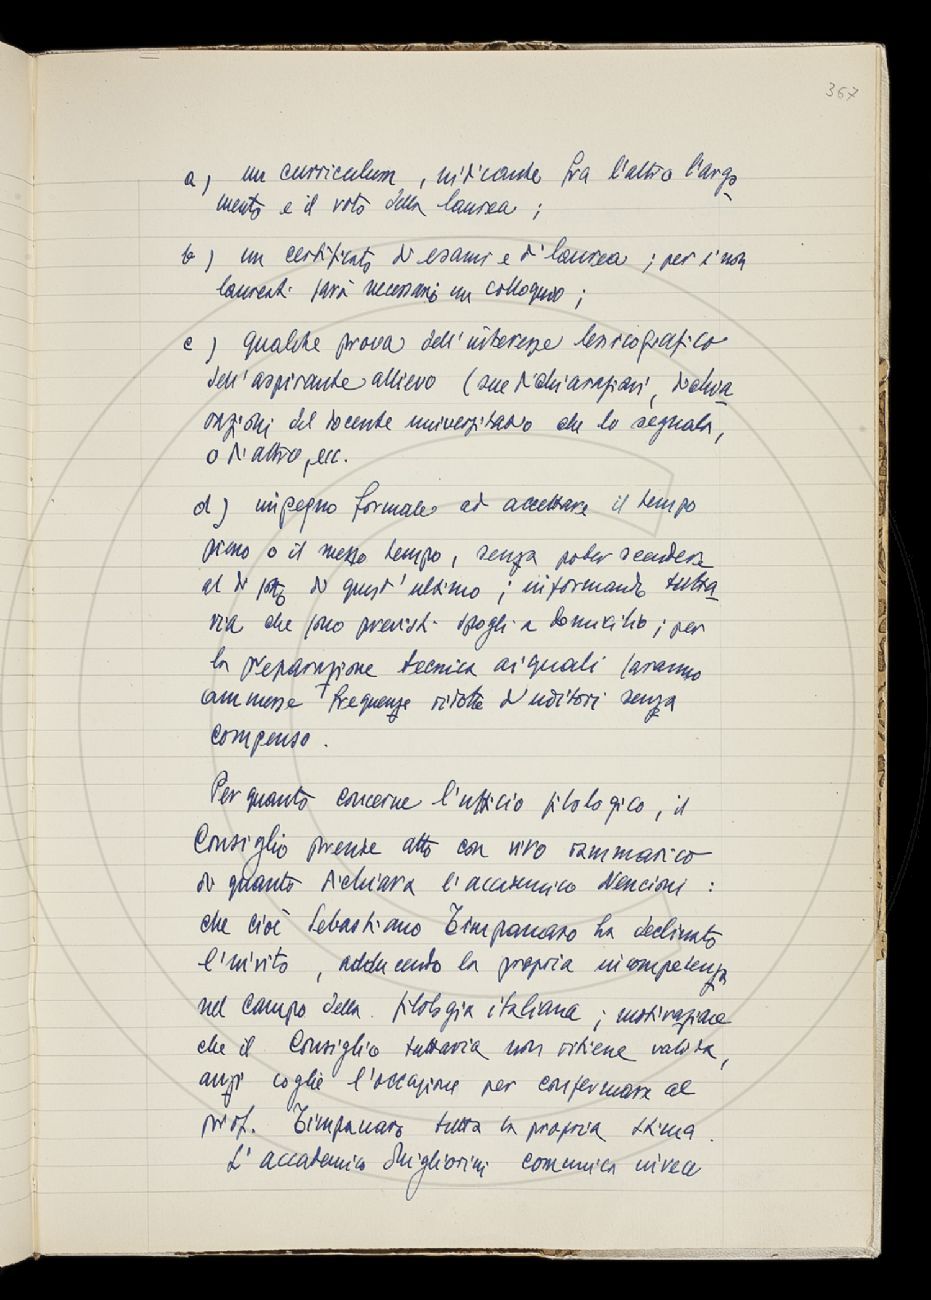 367
a) un curriculum, indicante fra l'altro l'argo-
mento e il voto della laurea;
b) un certificato di esami e di laurea; per i non
laureati sarà necessario un colloquio;
c) qualche prova dell'interesse lessicografico
dell'aspirante allievo (sue dichiarazioni, dichia-
razioni del docente universitario che lo segnala,
o d'altro, ecc.
d) impegno formale ad accettare il tempo
pieno o il mezzo tempo, senza poter scendere
al di sotto di quest'ultimo; informando tutta-
via che sono previsti spogli a domicilio; per
la preparazione tecnica ai quali saranno
ammesse frequenze ridotte d'uditori senza
compenso.
Per quanto concerne l'ufficio filologico, il
Consiglio prende atto con vivo rammarico
di quanto dichiara l'accademico Nencioni:
che cioè Sebastiano Timpanaro ha declinato
l'invito, adducendo la propria incompetenza
nel campo della filologia italiana; motivazione
che il Consiglio tuttavia non ritiene valida,
anzi coglie l'occasione per confermare al
prof. Timpanaro tutta la propria stima.
L'accademico Migliorini comunica invece